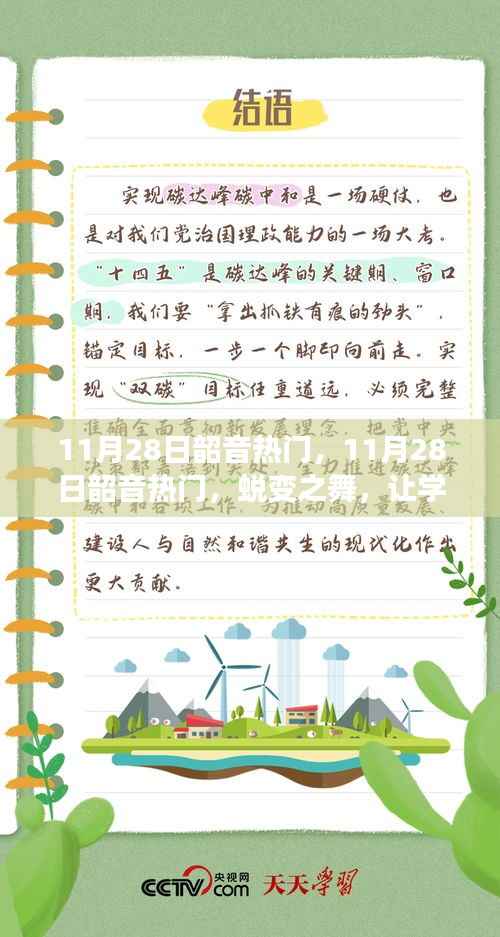 结语
实现碳达峰碳中和是一场硬仗，也
是对我们党治国理政能力的一场大考。
“十四五”是碳达峰的关键期、窗口
期，我们要“拿出抓铁有痕的劲头”，
锚定目标，一步一个脚印向前走。实
现“双碳”目标任重道远，必须完整
准确全面贯彻新发展理念，把党中央
11月28日韶音热门，11月28
日韶音热门，蜕变之舞，让学
建设人与自然和谐共生的现代化作出
更大贡献。
CCTV.com 央视网 天天学习